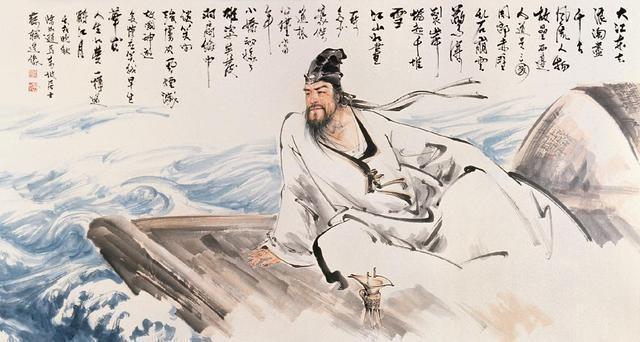 大江東去
浪淘盡
千古
風流人物
故壘西邊
人道是三國
周郎赤壁
乱石崩雲
驚濤
裂岸
捲起千堆
雪
江山如畫
一時
多少
豪傑
遙想
公瑾當
年
小喬初嫁了
雄姿英發
羽扇綸巾
談笑間
強虜灰飛煙滅
故國神遊
多情應笑我早生
華髮
人生如夢一樽還
酹江月
東坡居士
造像